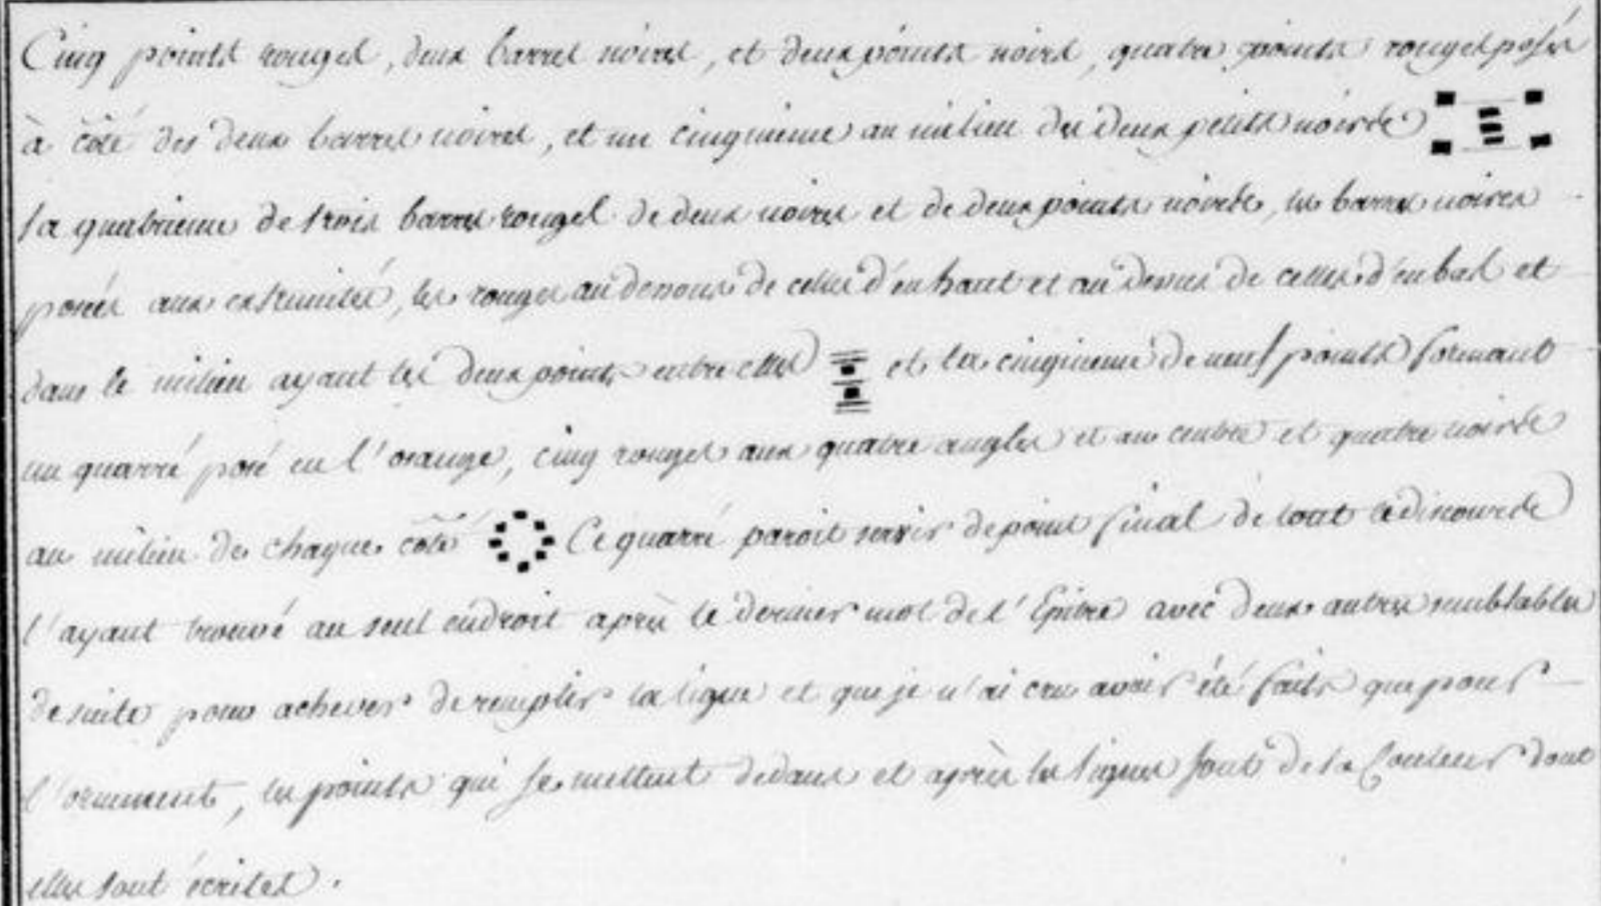 Cinq points rouges, deux barres noires, et deux points noirs, quatre points rouges posés
à côté des deux barres noires, et un cinquieme au milieu des deux petits noirs
la quatrieme de trois barres rouges de deux noires et de deux points noirs, les barres noires
posées aux extremités, les rouges au dessous de celles d'en haut et au dessus de celles d'en bas et
dans le milieu ayant les deux points entre elles et la cinquieme de neuf points formant
un quarré posé en l'osange, cinq rouges aux quatre angles et au centre et quatre noirs
au milieu de chaque côté Ce quarré paroit servir de point final de tout le discours
l'ayant trouvé au seul endroit après le dernier mot de l'Epitre avec deux autres semblables
de suite pour achever de remplir la ligne et que je n'ai cru avoir été faits que pour
l'ornement, les points qui se mettent dedans et après les lignes sont de la Couleur dont
elles sont écrites.